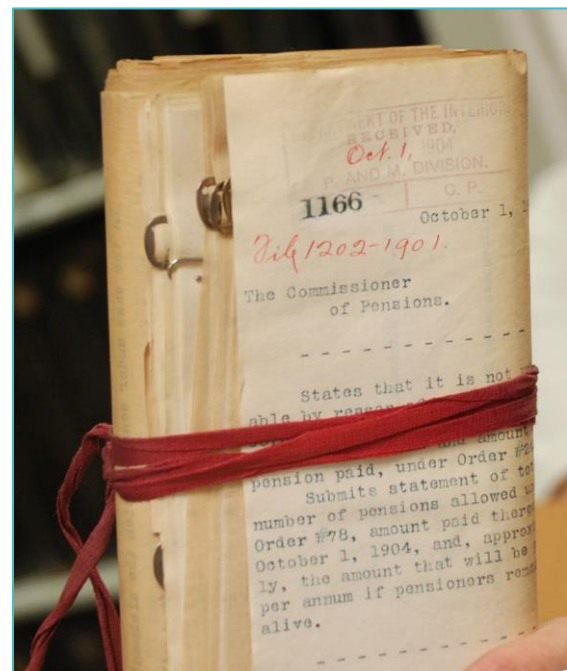 DEPARTMENT OF THE INTERIOR
RECEIVED,
Oct. 1, 1904
P. AND M. DIVISION.
1166 C. P.
October 1,
File 1202-1901.
The Commissioner
of Pensions.
- - - - - - - - - - -
States that it is not
able by reason of
and amount
pension paid, under Order
Submits statement of
number of pensions allowed
Order #78, amount paid
October 1, 1904, and,
ly, the amount that will be
per annum if pensioners
alive.
- - - - - - - -